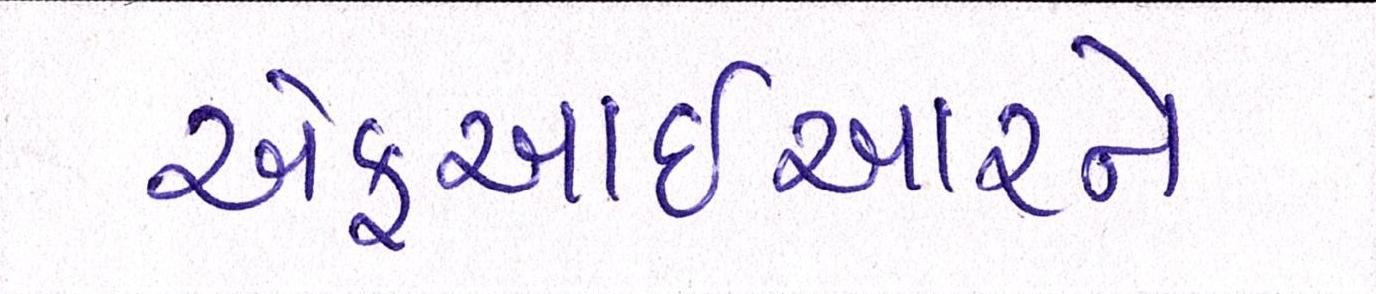 એફઆઈઆરને